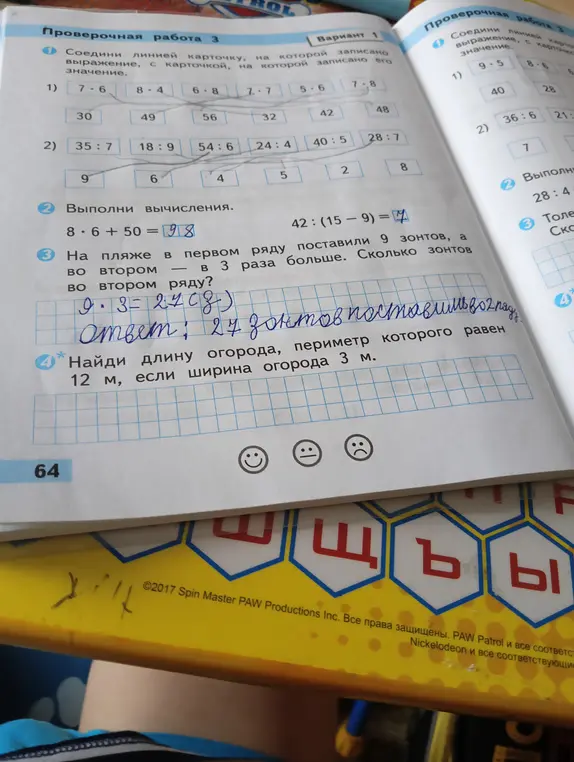 Проверочная работа 3
Вариант 1
1 Соедини линией карточку, на которой записано
выражение, с карточкой, на которой записано его
значение.
1) 7 · 6 8 · 4 6 · 8 7 · 7 5 · 6 7 · 8
30 49 56 32 42 48
2) 35 : 7 18 : 9 54 : 6 24 : 4 40 : 5 28 : 7
9 6 4 5 2 8
2 Выполни вычисления.
8 · 6 + 50 = 98 42 : (15 − 9) = 7
3 На пляже в первом ряду поставили 9 зонтов, а
во втором — в 3 раза больше. Сколько зонтов
во втором ряду?
9 · 3 = 27 (з)
Ответ: 27 зонтов поставили во 2 ряду
4* Найди длину огорода, периметр которого равен
12 м, если ширина огорода 3 м.
64
Проверочная работа 3
1 Соедини линией
выражение, с
значение.
1) 9 · 5
40 28
2) 36 : 6 21 :
7
2
28 : 4
3
Ш Щ Ъ Ы
©2017 Spin Master PAW Productions Inc. Все права защищены. PAW Patrol и все
Nickelodeon и все